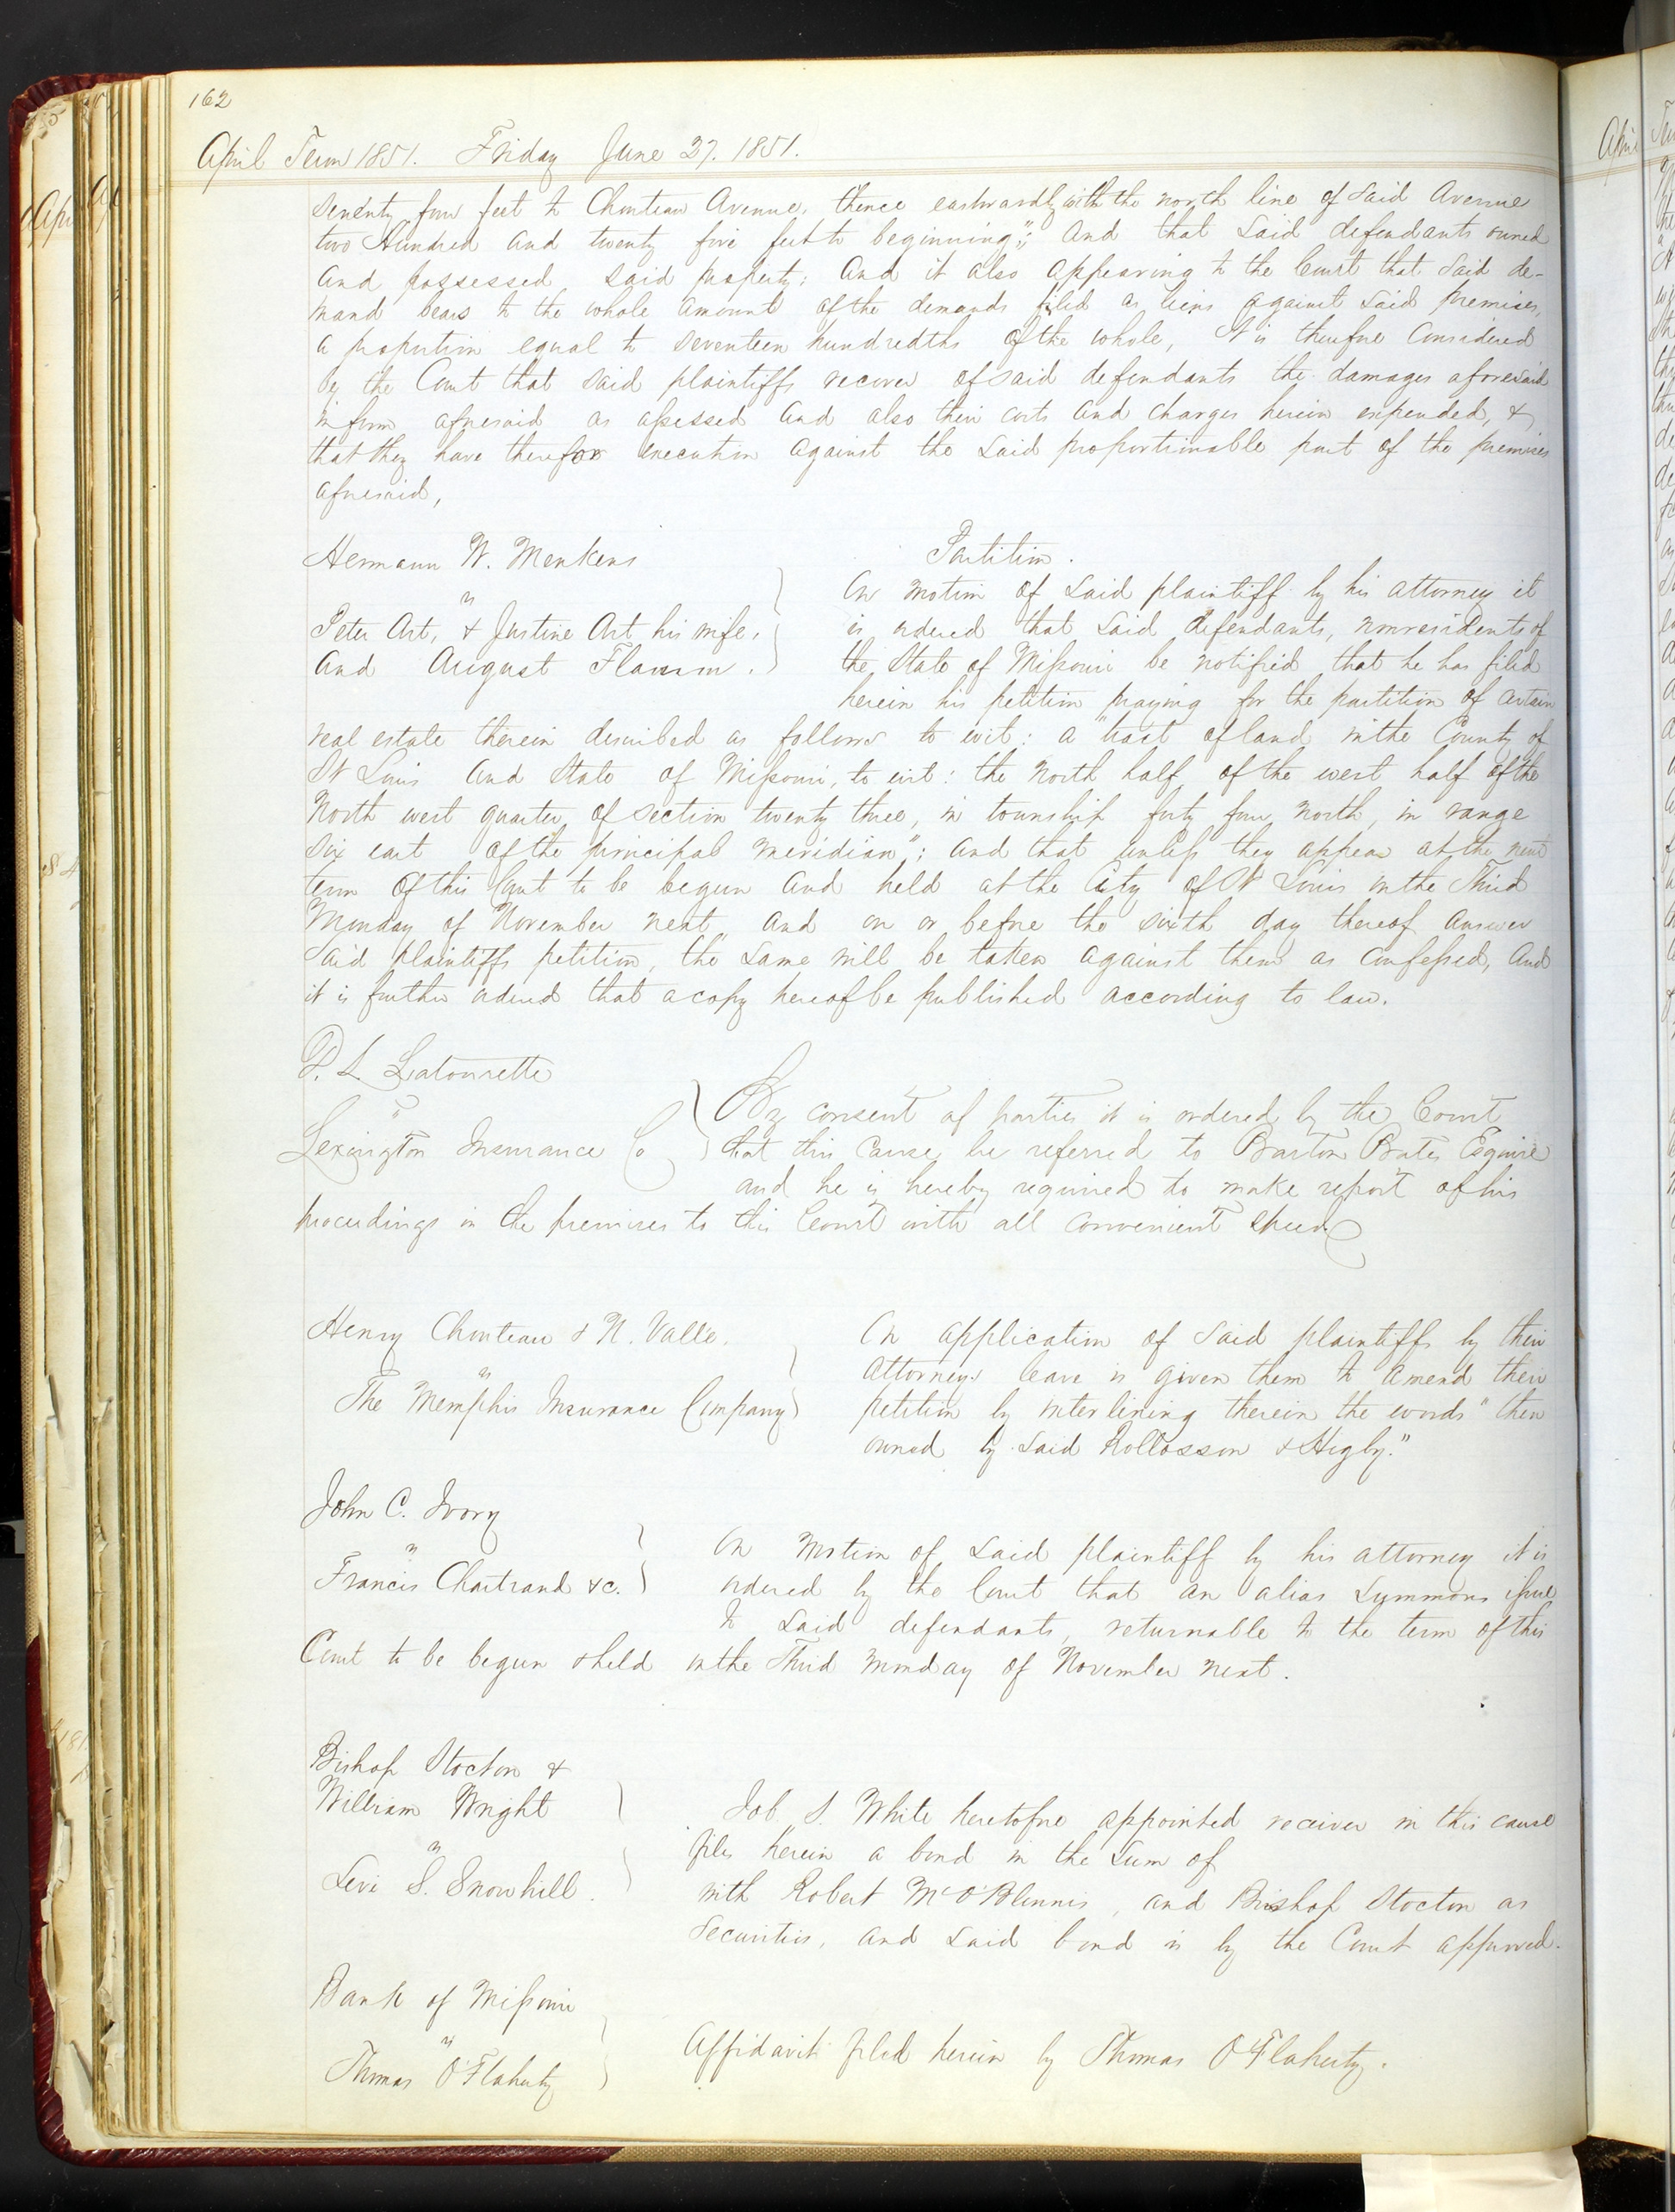 162
April Term 1851. Friday June 27. 1851.
seventy four feet to Chouteau Avenue, thence eastwardly with the north line of said Avenue
two Hundred and twenty five feet to beginning"; And that said defendants owned
and possessed said property; And it also appearing to the Court that said de-
mand bears to the whole amount of the demands filed as liens against said premises,
a proportion equal to seventeen hundredths of the whole, It is therefore considered
by the Court that said plaintiffs recover of said defendants the damages aforesaid
in form aforesaid as assessed and also their costs and charges herein expended, &
that they have therefor execution against the said proportionable part of the premises
aforesaid,
Hermann W. Menkens
vs
Peter Art, & Justine Art his wife,
And August Flamm.
Partition.
On motion of said plaintiff by his attorney it
is ordered that said defendants, nonresidents of
the State of Missouri be notified that he has filed
herein his petition praying for the partition of certain
real estate therein described as follows to wit: a "tract of land in the County of
St Louis and State of Missouri, to wit: the North half of the west half of the
North west quarter of section twenty three, in township forty four north, in range
six east of the principal meridian"; and that unless they appear at the next
term of this Court to be begun and held at the City of St Louis on the Third
Monday of November next and on or before the sixth day thereof answer
said plaintiffs petition, the same will be taken against them as confessed, and
it is further ordered that a copy hereof be published according to law.
P. L. Latourette
vs
Lexington Insurance Co
By consent of parties it is ordered by the Court
that this cause be referred to Barton Bates Esquire
and he is hereby required to make report of his
proceedings in the premises to this Court with all convenient speed
Henry Chouteau & N. Valle.
vs
The Memphis Insurance Company
On application of said plaintiffs by their
attorneys leave is given them to amend their
petition by interlining therein the words "then
owned by said Rollosson & Higby."
John C. Ivory
vs
Francis Chartrand &c.
On motion of said plaintiff by his attorney it is
ordered by the Court that an alias summons issue
to said defendants, returnable to the term of this
Court to be begun & held on the Third monday of November next.
Bishop Stocton &
William Wright
vs
Levi S. Snowhill.
Job S. White heretofore appointed receiver in this cause
files herein a bond in the sum of
with Robert McO'Blennis, and Bishop Stocton as
securities, and said bond is by the Court approved.
Bank of Missouri
vs
Thomas O'Flaherty
Affidavit filed herein by Thomas O'Flaherty.